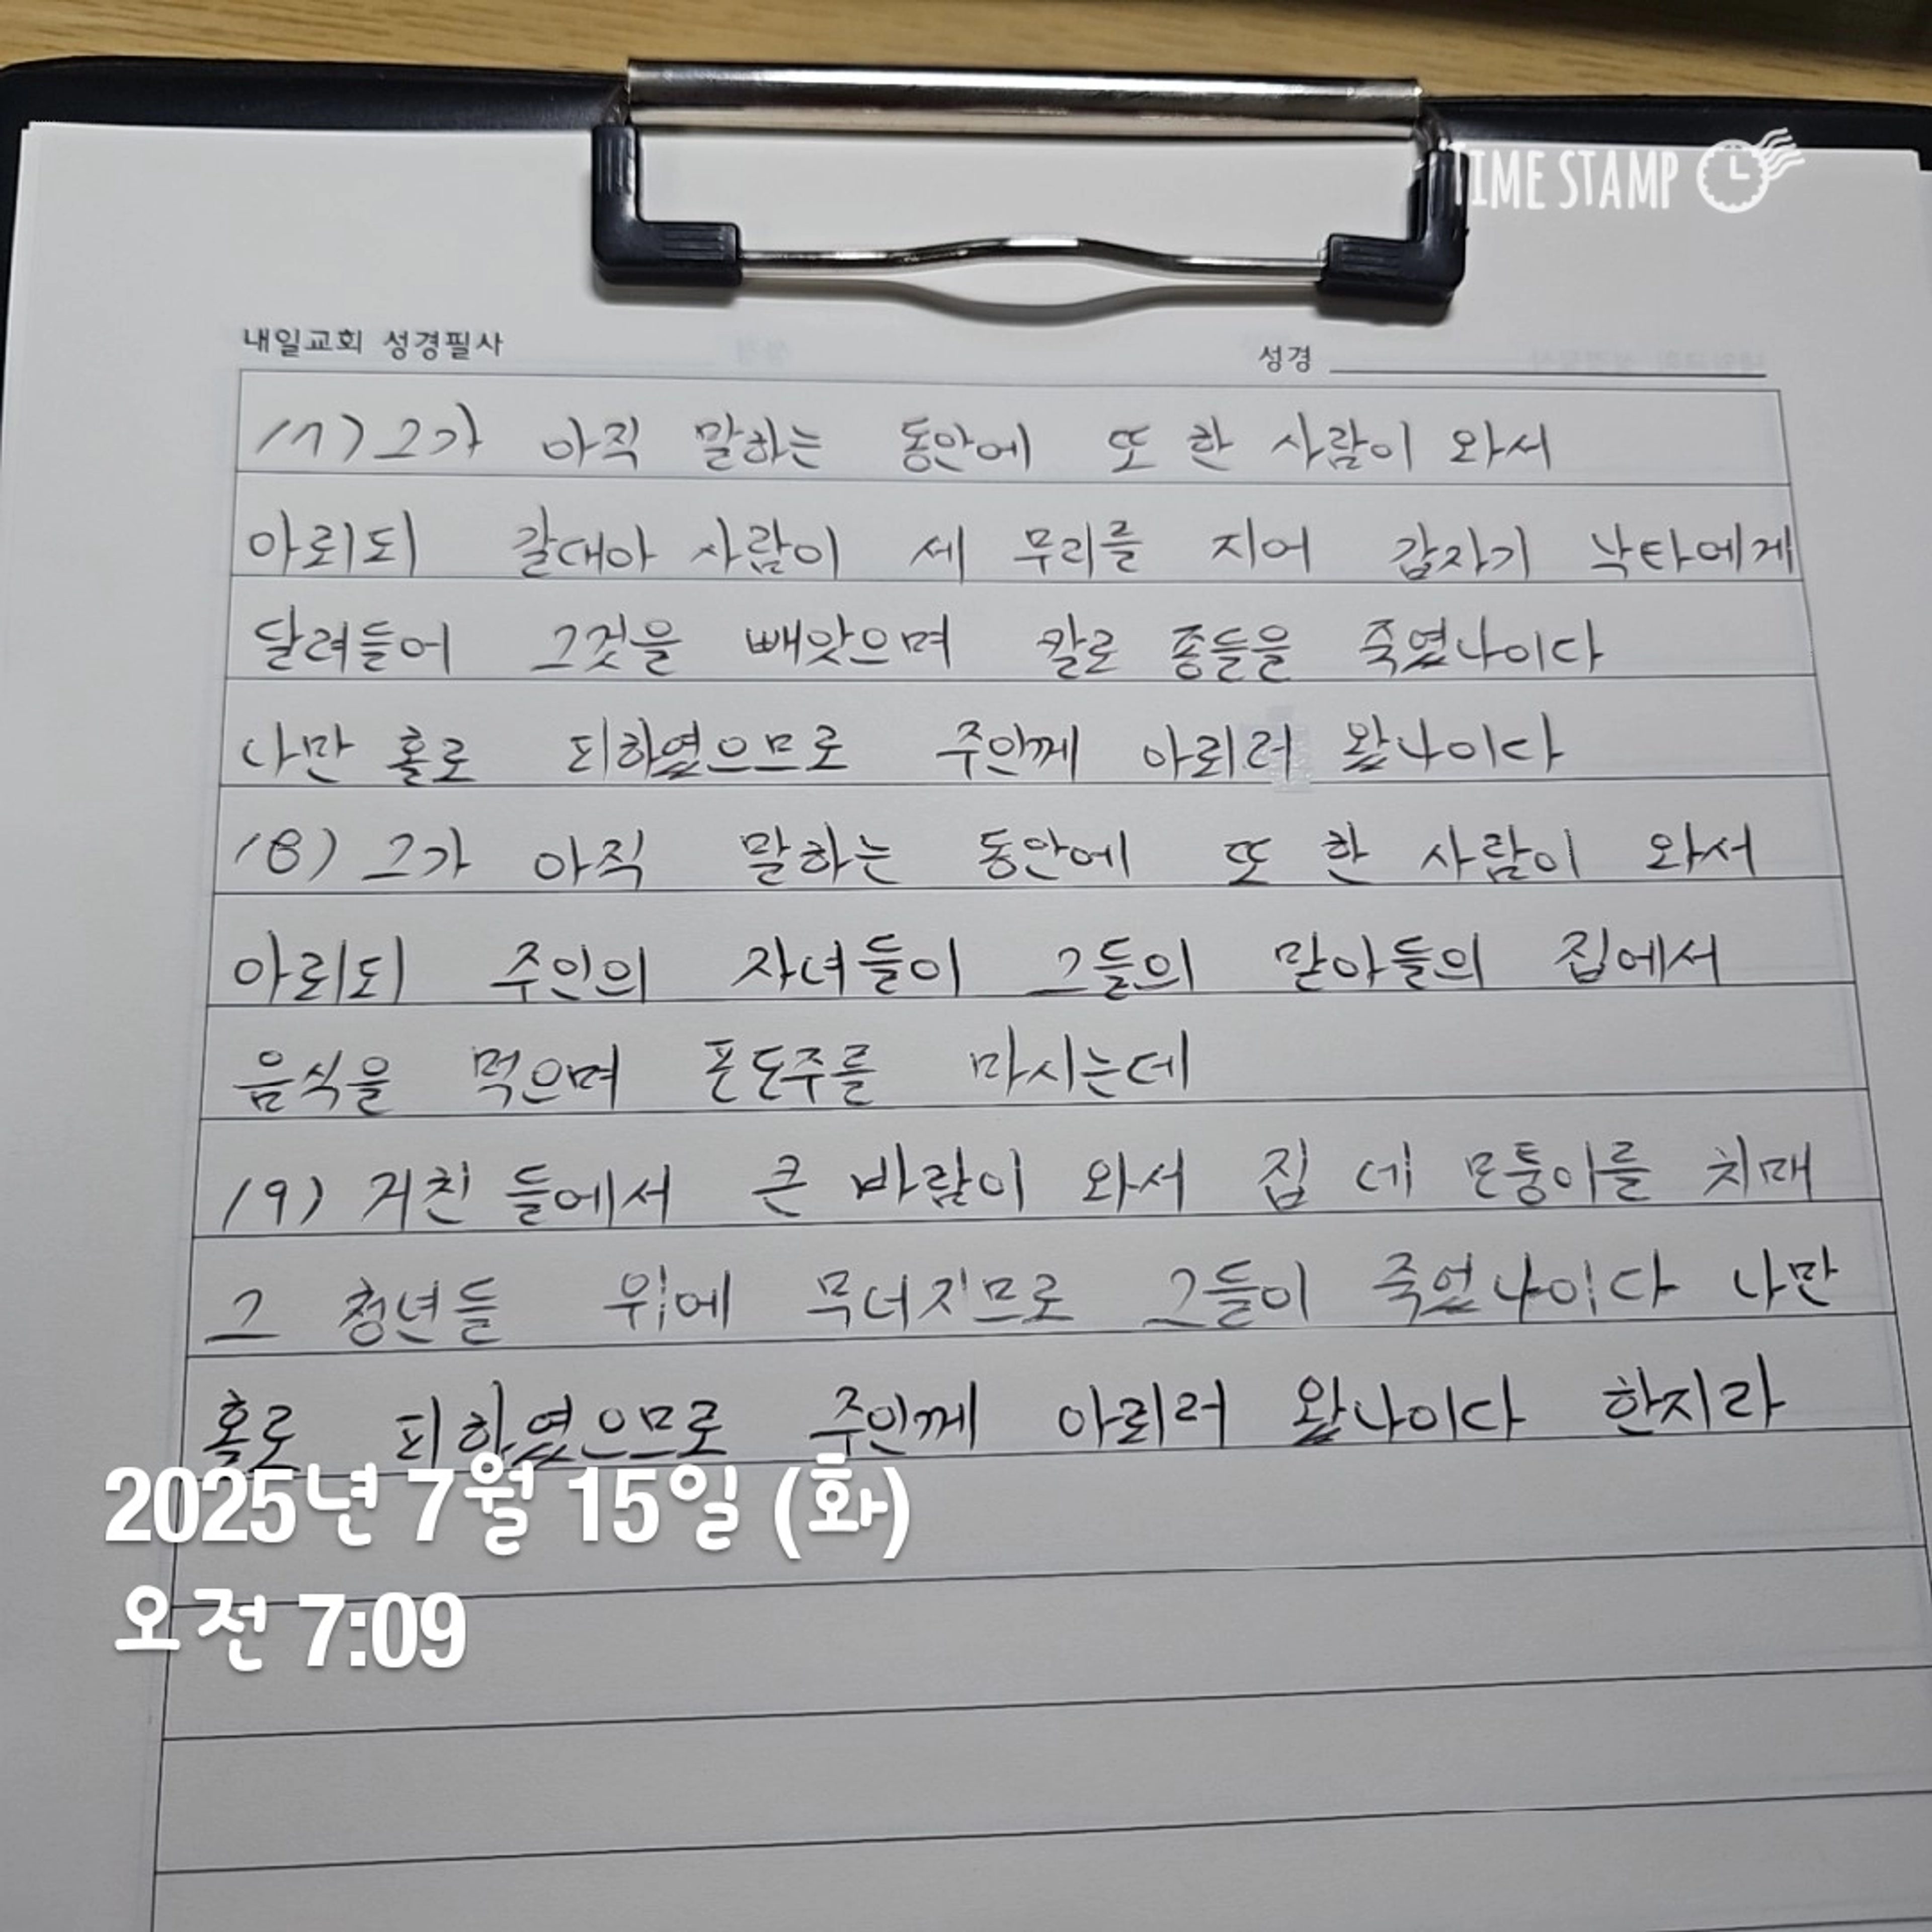 TIME STAMP
내일교회 성경필사 성경
17) 그가 아직 말하는 동안에 또 한 사람이 와서
아뢰되 갈대아 사람이 세 무리를 지어 갑자기 낙타에게
달려들어 그것을 빼앗으며 칼로 종들을 죽였나이다
나만 홀로 피하였으므로 주인께 아뢰러 왔나이다
18) 그가 아직 말하는 동안에 또 한 사람이 와서
아뢰되 주인의 자녀들이 그들의 맏아들의 집에서
음식을 먹으며 포도주를 마시는데
19) 거친 들에서 큰 바람이 와서 집 네 모퉁이를 치매
그 청년들 위에 무너지므로 그들이 죽었나이다 나만
홀로 피하였으므로 주인께 아뢰러 왔나이다 한지라
2025년 7월 15일 (화)
오전 7:09